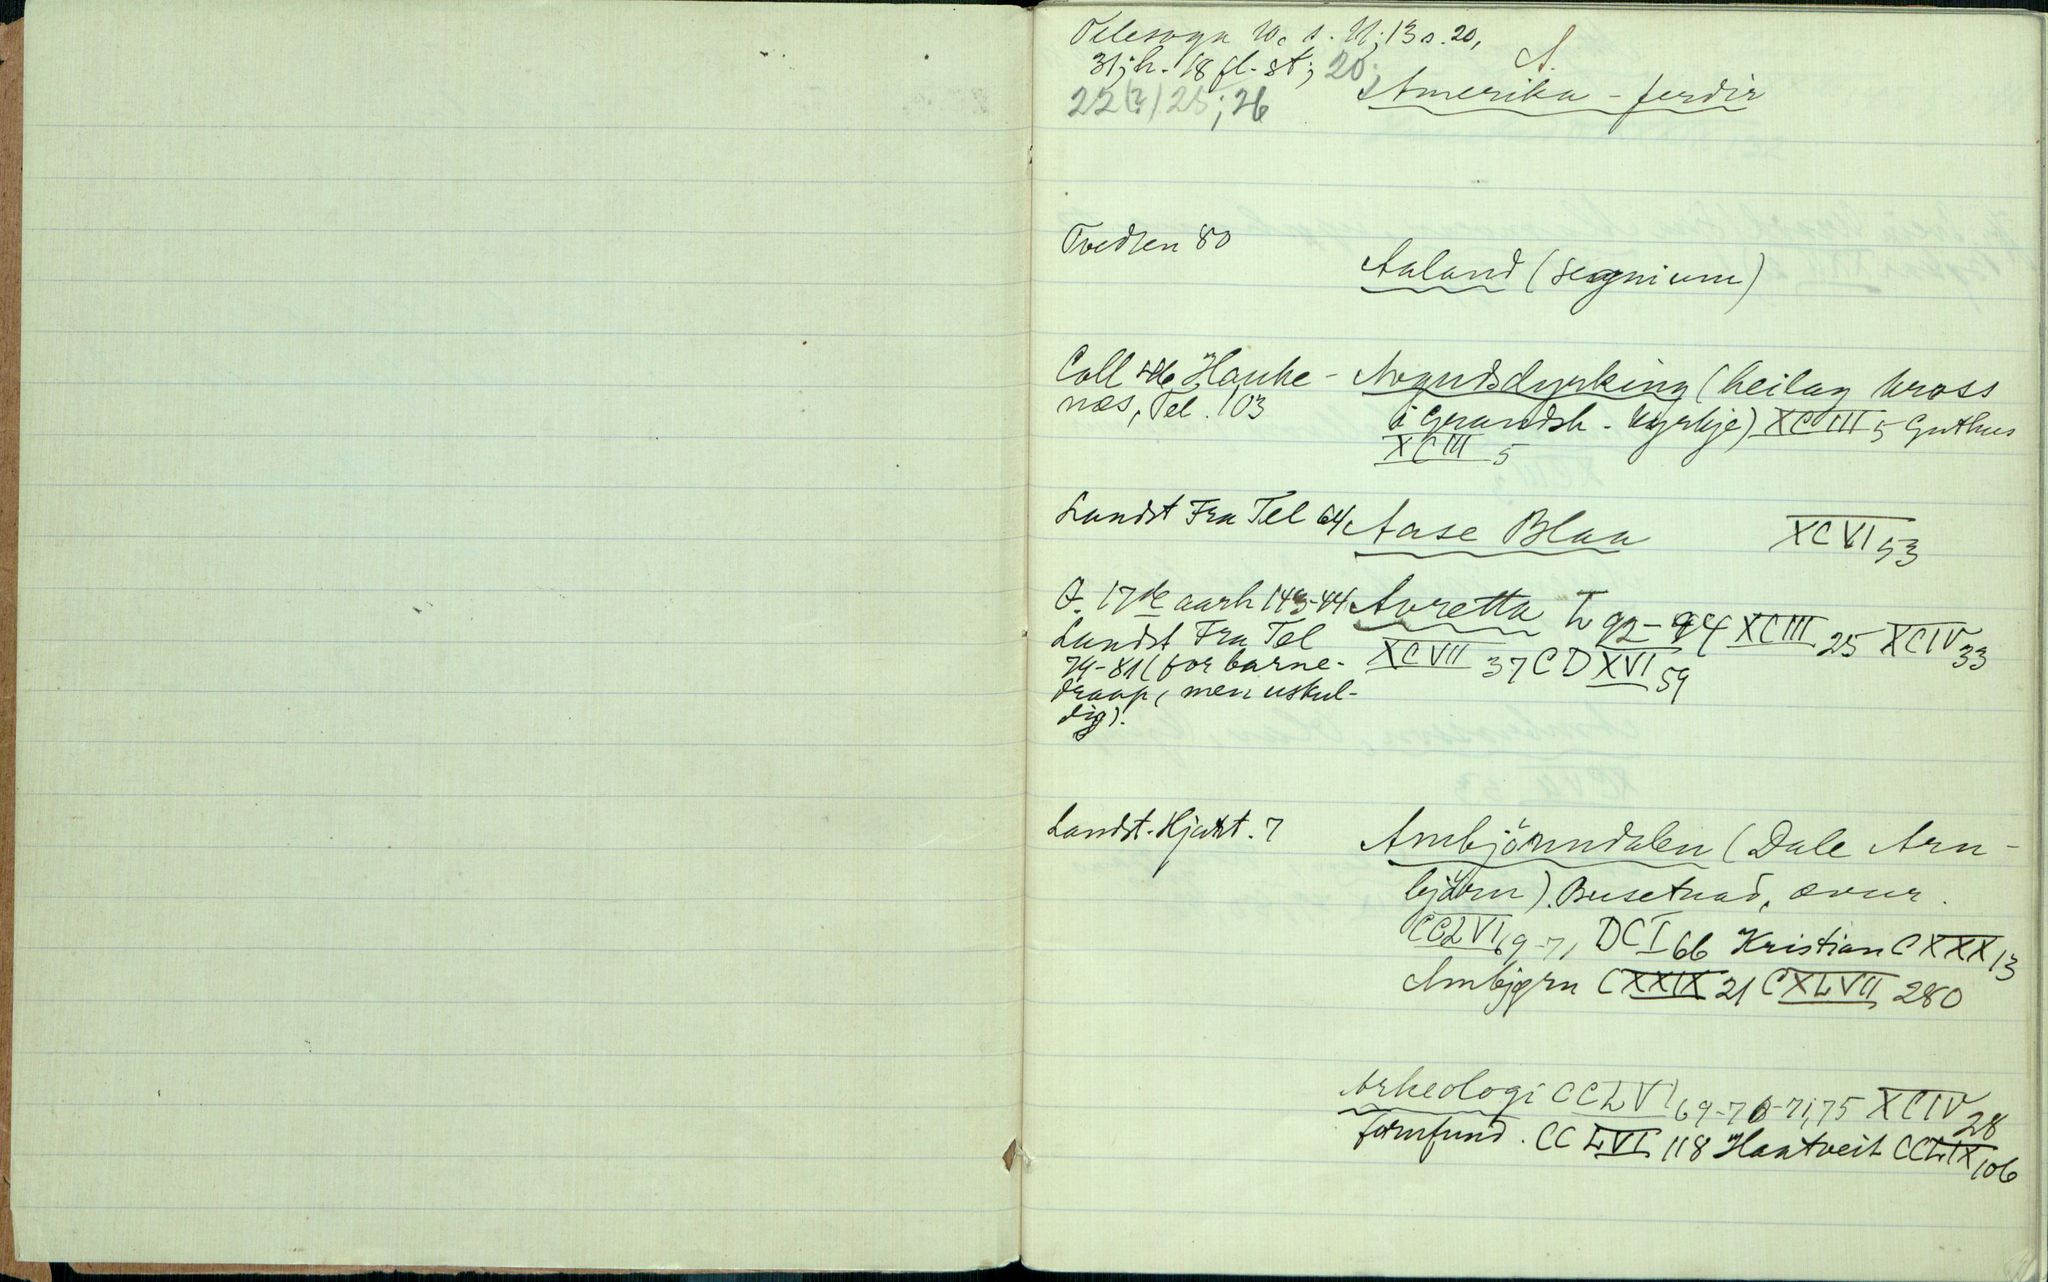 A.
Telesoga 10. s. 11; 13 s. 20,
31; h. 18 fl. st; 20;
22(?) 25; 26
Amerika-ferdir
Tvedten 80
Aaland (segnium)
Coll 46 Hauke-
næs, Tel. 103
Avgudsdyrking (heilag kross
i Gransh. kyrkje) XCIII 5 Guthus
XCIII 5
Landst Fra Tel 64
Aase Blaa XCVI 53
17de aarh 143-44
Landst Fra Tel
79-81 (for barne-
draap, men uskul-
dig).
Avretta L 92-94 XCIII 25 XCIV 33
XCVII 37 CDXVI 59
Landst. Hjartd. 7
Ambjörnndalen (Dale Arn-
björn). Busetnad, ovur.
CCLVI 69-71 DCI 66 Kristian CXXX 13
Ambjørn CXXIX 21 CXLVII 280
Arkeologi CCLVI 69-70-71, 75 XCIV 28
Fornfund. CCLVI 118 Haatveit CCLIX 106